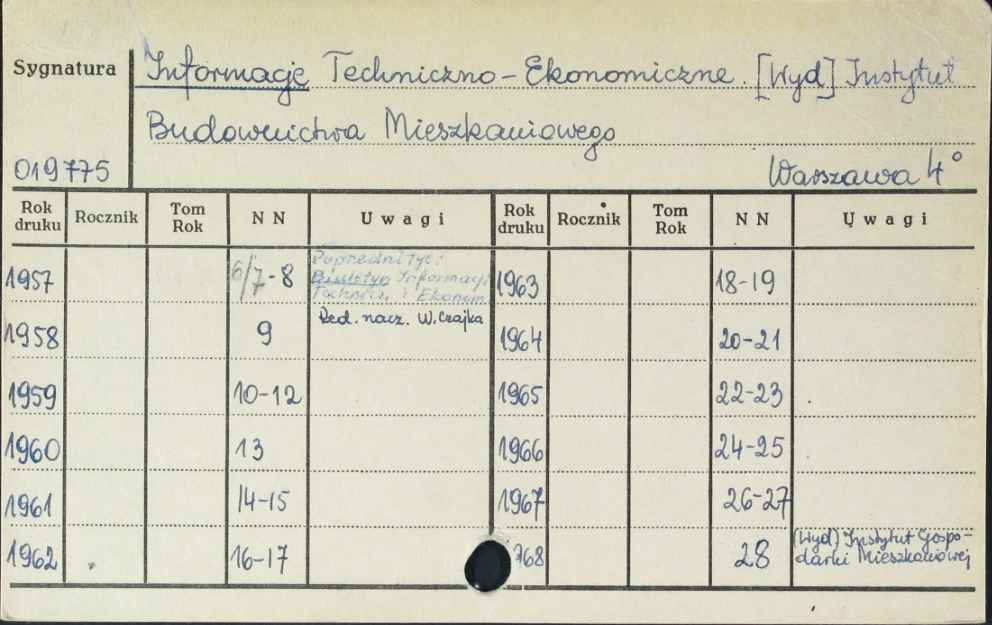 Sygnatura
Informacje Techniczno-Ekonomiczne. [Wyd] Instytut
Budownictwa Mieszkaniowego
019775
Warszawa 4°
Rok druku Rocznik Tom Rok N N Uwagi Rok druku Rocznik Tom Rok N N Uwagi
1957 6/7-8 1963 18-19
Poprzedni tyt:
Biuletyn Informacji
Techniczn. i Ekonom.
Red. nacz. W. Czajka
1958 9 1964 20-21
1959 10-12 1965 22-23
1960 13 1966 24-25
1961 14-15 1967 26-27
1962 16-17 968 28 (Wyd) Instytut Gospo-
darki Mieszkaniowej